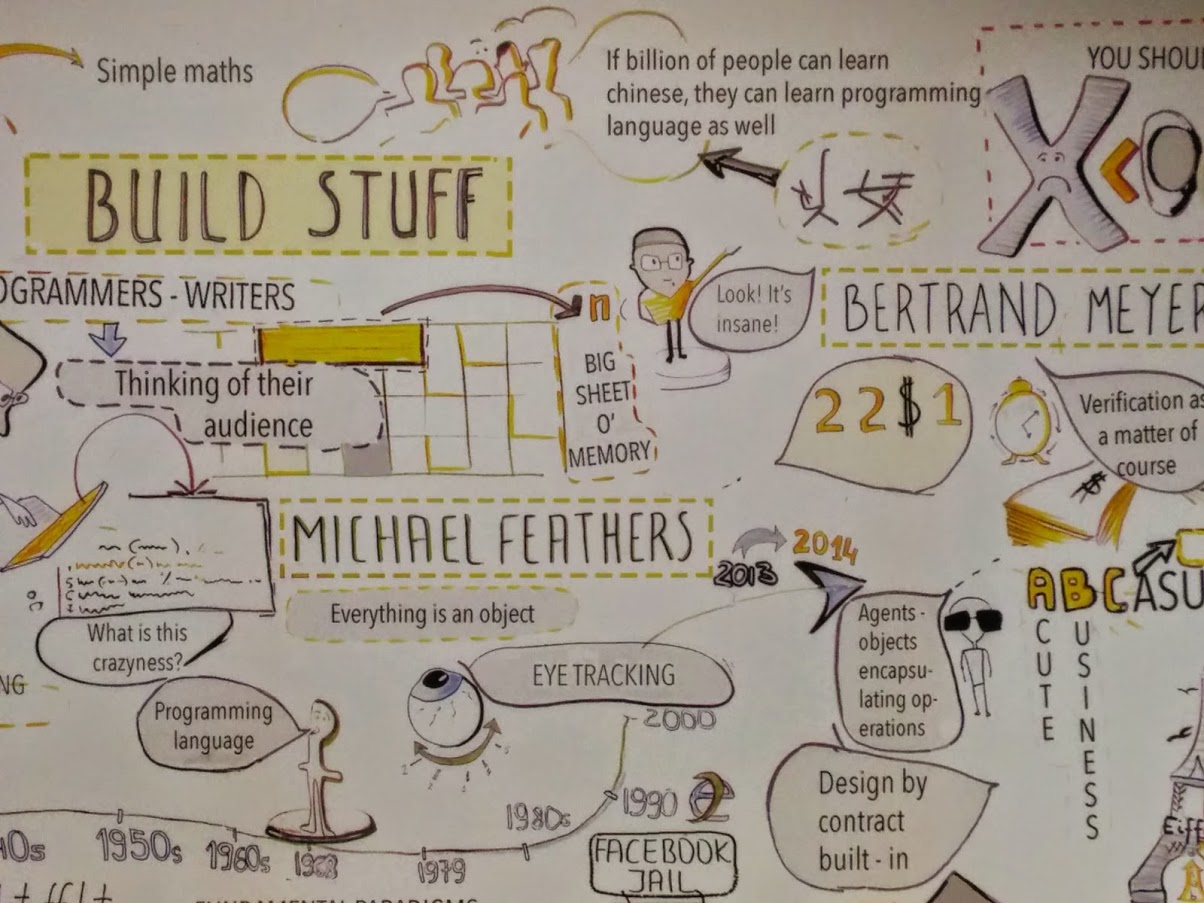 Simple maths
If billion of people can learn
chinese, they can learn programming
language as well
YOU SHOU
X < 9
BUILD STUFF
OGRAMMERS - WRITERS
Thinking of their
audience
n
BIG
SHEET
O'
MEMORY
Look! It's
insane!
BERTRAND MEYER
2 2 $ 1
Verification as
a matter of
course
$
MICHAEL FEATHERS
Everything is an object
What is this
crazyness?
NG
Programming
language
EYE TRACKING
2013
2014
Agents -
objects
encapsu-
lating op-
erations
ABCASU
CUTE
USINESS
Design by
contract
built - in
40s
1950s
1960s
1968
1979
1980s
1990
2000
FACEBOOK
JAIL
Eiff
FUNDAMENTAL PARADIGMS